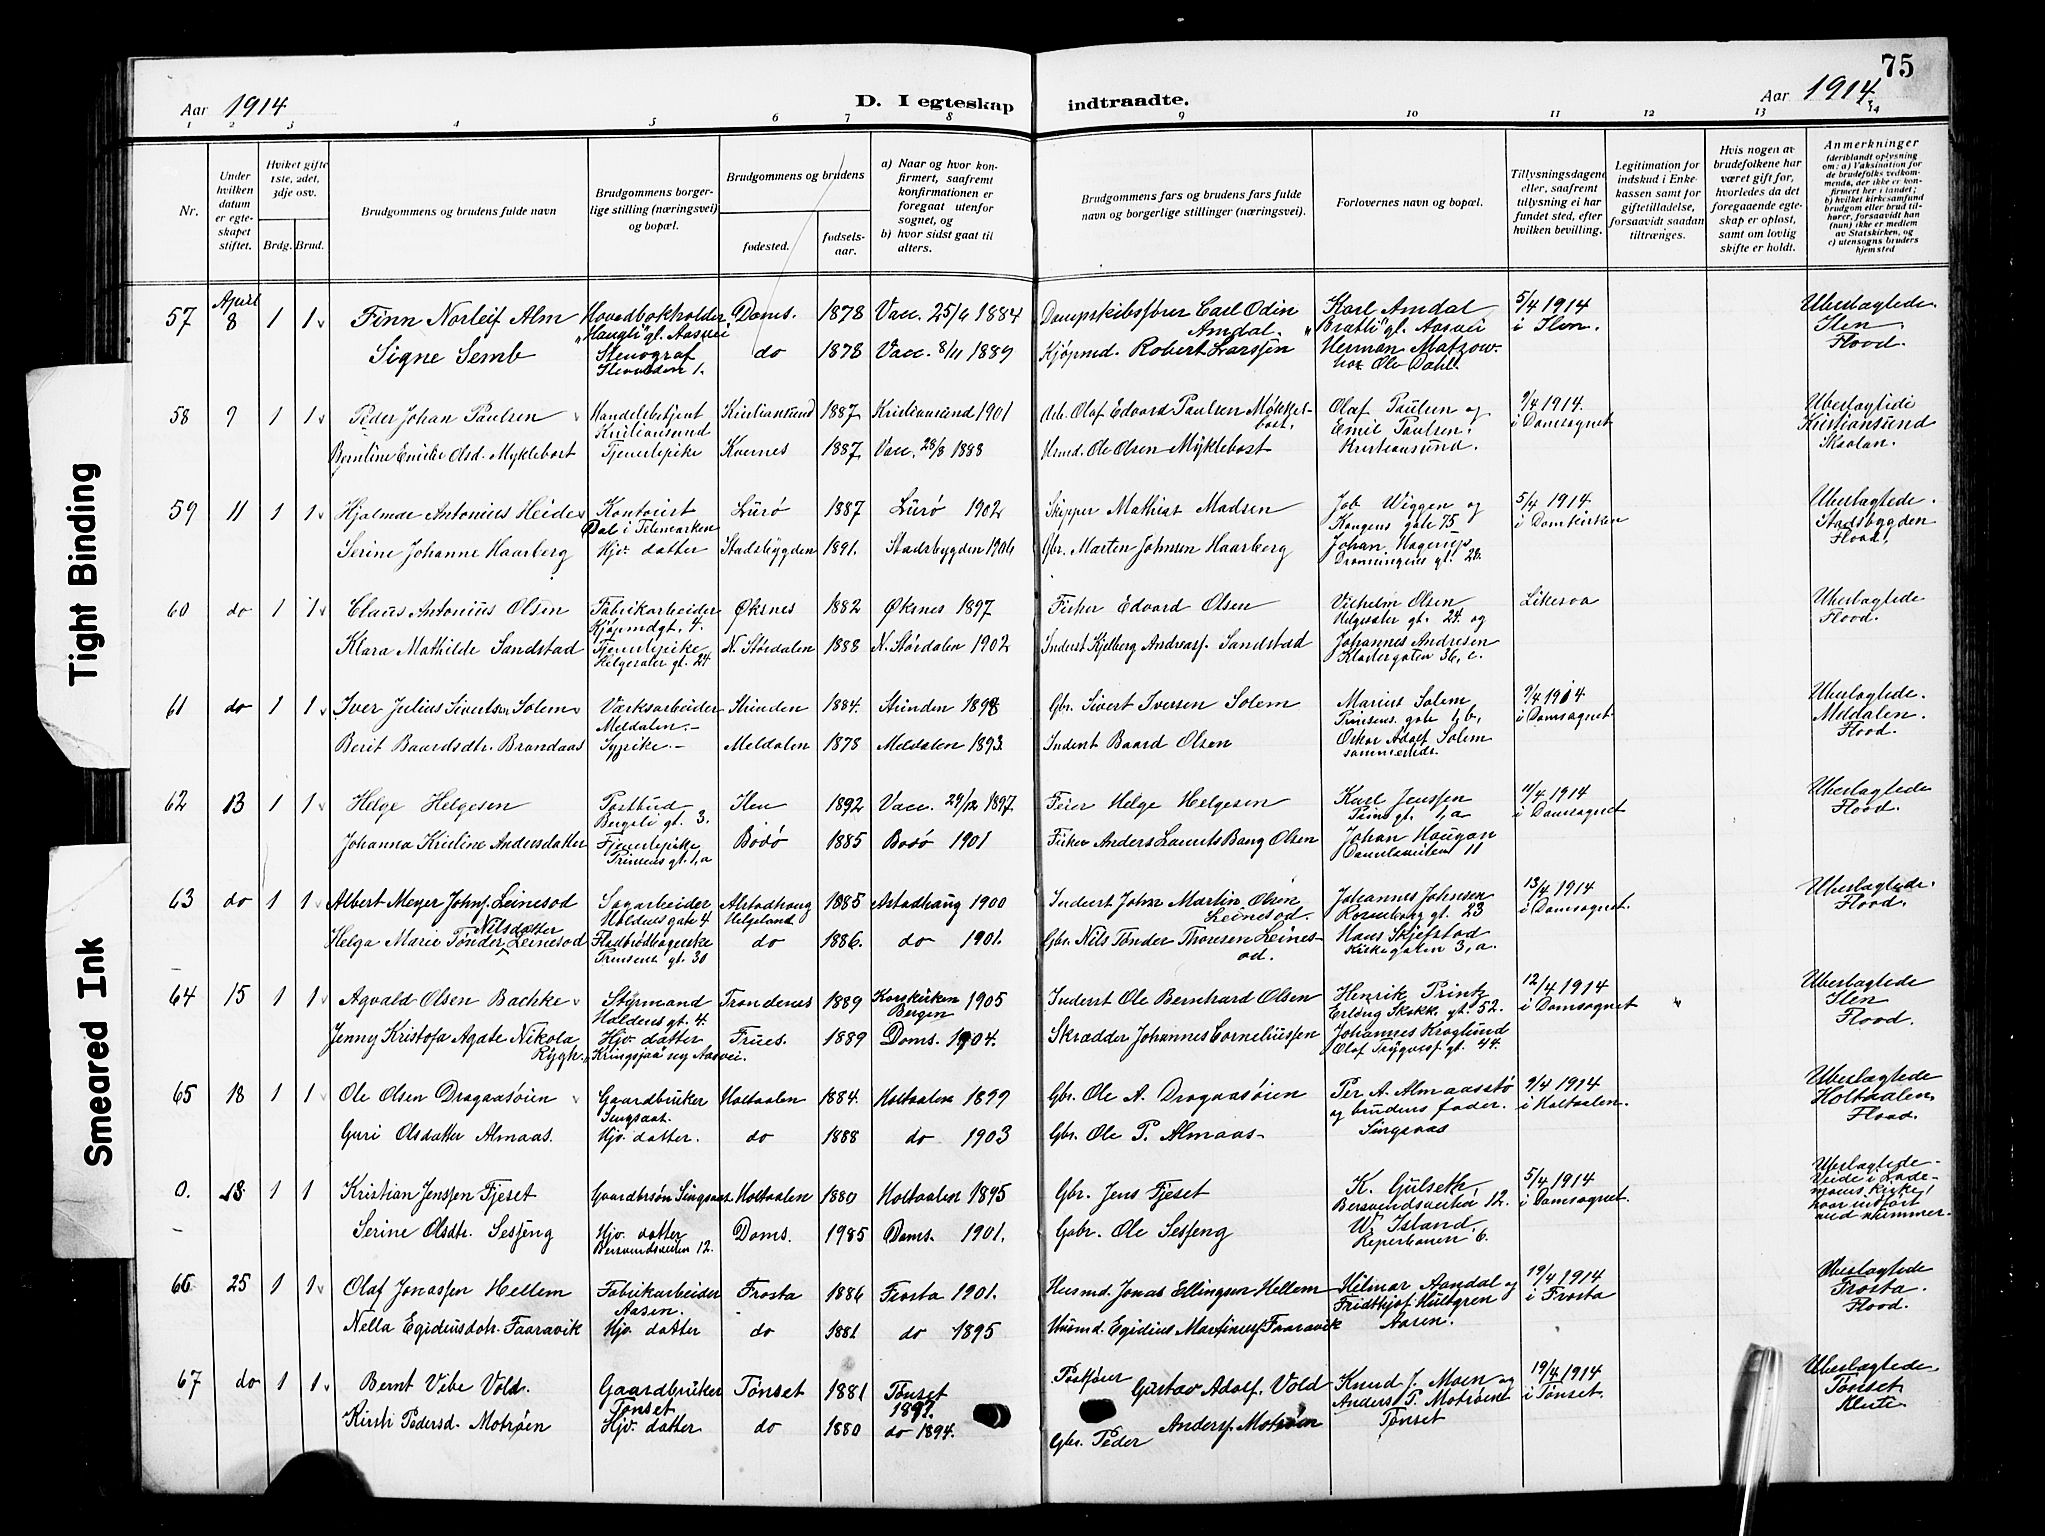 75
Aar 1914
D. I egteskap indtraadte.
Aar 1914
1 2 3 4 5 6 7 8 9 10 11 12 13 14
Nr.
Under hvilken datum er egteskapet stiftet.
Hviket gifte 1ste, 2det, 3dje osv.
Brdg. Brud.
Brudgommens og brudens fulde navn
Brudgommens borgerlige stilling (næringsvei) og bopæl.
Brudgommens og brudens
fødested.
fødselsaar.
a) Naar og hvor konfirmert, saafremt konfirmationen er foregaat utenfor sognet, og
b) hvor sidst gaat til alters.
Brudgommens fars og brudens fars fulde navn og borgerlige stillinger (næringsvei).
Forlovernes navn og bopæl.
Tillysningsdagene eller, saafremt tillysning ei har fundet sted, efter hvilken bevilling.
Legitimation for indskud i Enkekassen samt for giftetilladelse, forsaavidt saadan tiltrænges.
Hvis nogen av brudefolkene har været gift før, hvorledes da det foregaaende egteskap er opløst, samt om lovlig skifte er holdt.
Anmerkninger (deriblandt oplysning om: a) Vaksination for de brudefolks vedkommende, der ikke er konfirmert her i landet; b) hvilket kirkesamfund brudgom eller brud tilhører, forsaavidt han (hun) ikke er medlem av Statskirken, og c) utensogns bruders hjemsted
57 April 8 1 1 Finn Norleif Alm Hovedbokholder "Haugli" gl. Aasvei Doms. 1878 Vacc. 25/6 1884 Dampskibsfører Carl Odin Amdal. Karl Amdal "Bratli" gl. Aasvei 5/4 1914 i Ilen. Ubeslægtede. Ilen. Flood.
Signe Semb Stenograf 1. do 1878 Vacc. 8/11 1889 Kjøpmd. Robert Larssen Herman Matzow. hos Ole Dahl.
58 9 1 1 Peder Johan Paulsen Handelsbetjent Kristiansund Kristiansund 1887 Kristiansund 1901 Arb. Olaf Edvard Paulsen Møkkelbost. Olaf Paulsen og Emil Paulsen. Kristiansund. 9/4 1914. i Domsognet Ubeslægtede Kristiansund
Berntine Emilie Olsd. Myklebost Tjenestepike Kvernes 1887 Vacc. 28/8 1888 Husmd. Ole Olsen Myklebost
59 11 1 1 Hjalmar Antonius Heide Kontorist Dal i Telemarken Lurø 1887 Lurø 1902 Skipper Mathias Madsen Job Wiggen og Kongens gate 75 5/4 1914. i Domkirken Ubeslægtede. Stadsbygden Flood.
Serine Johanne Haarberg Hjv. datter Stadsbygden 1891. Stadsbygden 1906 Gbr. Marten Johnsen Haarberg Johan Hagerups Dronningens gt. 28.
60 do 1 1 Claus Antonius Olsen Fabrikarbeider Kjøpmdgt. 4. Øksnes 1882 Øksnes 1897 Fisker Edvard Olsen Vilhelm Olsen Helgesæter gt. 24. og Likesaa Ubeslægtede Flood.
Klara Mathilde Sandstad Tjenestepike Helgesæter gt. 24 N. Stördalen 1888 N. Stördalen 1902 Inderst Kjelberg Andreass. Sandstad Johannes Andresen Kladergaten 36, c.
61 do 1 1 Iver Julius Sivertsen Solem Værksarbeider Meldalen.- Strinden 1884. Strinden 1898 Gbr. Sivert Iversen Solem Marius Solem Prinsens gate 1, b, 9/4 1914 i Domsognet. Ubeslægtede. Meldalen. Flood.
Berit Baardsdtr. Brandaas Sypike.- Meldalen 1878 Meldalen 1893. Inderst Baard Olsen Oskar Adolf Solem sammesteds.
62 13 1 1 Helge Helgesen Postbud Bergsli gt. 3. Ilen 1892 Vacc. 29/12 1897. Feier Helge Helgesen Karl Jenssen Prins gt. 1, a 11/4 1914 i Domsognet Ubeslægtede Flood.
Johanna Kristine Andersdatter Tjenestepike Prinsens gt. 1, a Bodö 1885 Bodö 1901 Fisker Anders Lauritz Bang Olsen Johan Haugan 11
63 do 1 1 Albert Meyer Johns. Leinesod Sagarbeider Holdens gate 4 Alstadhaug Helgeland 1885 Alstadhaug 1900 Inderst John Martin Olsen Leinesod. Johannes Johnsen Rosenborg gt. 23 13/4 1914 i Domsognet. Ubeslægtede. Flood.
Helga Marie Tønder Nilsdatter Leinesod Fladbrødbagerske Prinsens gt. 30 do 1886. do 1901. Gbr. Nils Tønder Thonesen Leinesod. Hans Skjefstad Kirkegaten 3, a.
64 15 1 1 Agvald Olsen Bachke Styrmand Holdens gt. 4. Trondenes 1889 Korskirken Bergen 1905 Inderst Ole Bernhard Olsen Henrik Printz Erling Skakk. gt. 52. 12/4 1914 i Domsognet Ubeslægtede Ilen Flood.
Jenny Kristofa Agate Nikola Rygh. Hjv. datter "Kringsjaa" ny Aasvei. Frues. 1889 Doms. 1904. Skrædder Johannes Corneliussen Johannes Kraglund Olaf Trygvess. gt. 44.
65 18 1 1 Ole Olsen Dragaasøien Gaardbruker Singsaas. Holtaalen 1884. Holtaalen 1899 Gbr. Ole A. Dragaasøien Per A. Almaasstø og brudens fader. Singsaas 9/4 1914 i Holtaalen. Ubeslægtede Holtaalen, Flood.
Guri Olsdatter Almaas. Hjv. datter. do 1888 do 1903 Gbr. Ole P. Almaas
0. 18 1 1 Kristian Jenssen Fjeset Gaardbr.søn Singsaas. Holtaalen 1880 Holtaalen 1895 Gbr. Jens Fjeset K. Gulseth Bersvendsveita 12. 5/4 1914 i Domsognet. Ubeslægtede. Viede i Lademoens kirke, hvor indført med nummer.
Serine Olsdtr. Sesseng Hjv. datter Bersvendsveiten 12. Doms. 1985 Doms. 1901. Gabr. Ole Sesseng W. Island Reperbanen 6.
66 25 1 1 Olaf Jonassen Hellem Fabrikarbeider Aasen. Frosta 1886 Frosta 1901. Husmd. Jonas Ellingsen Hellem Hilmar Aandal og Fridthjof Hultgren Aasen. 19/4 1914 i Frosta Ubeslægtede Frosta. Flood.
Nella Egidiusdotr. Faaravik Hjv. datter do 1881 do 1895 Husmd. Egidius Martinuss. Faaravik
67 do 1 1 Bernt Vibe Vold. Gaardbruker Tønset Tønset 1881 Tønset 1897. Postfører Gustav Adolf. Vold Knud J. Moen og Anders P. Motrøen Tønset 19/4 1914 i Tønset. Ubeslægtede. Tønset.
Kirsti Pedersd. Motrøen Hjv. datter do 1880 do 1894. Gbr. Peder Anderss. Motrøen
Tight Binding
Smeared Ink